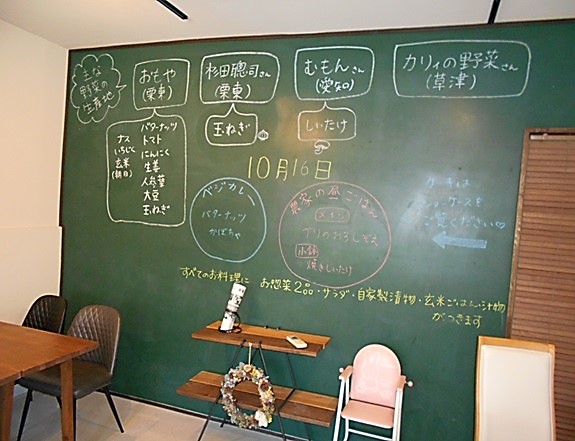 主な
野菜の
生産地
おもや
(栗東)
杉田聰司さん
(栗東)
むもんさん
(愛知)
カリィの野菜さん
(草津)
ナス
いちじく
玄米
(朝日)
バターナッツ
トマト
にんにく
生姜
人参葉
大豆
玉ねぎ
玉ねぎ
しいたけ
10月16日
ベジカレー
バターナッツ
かぼちゃ
農家の昼ごはん
メイン
ブリのおろしぞえ
小鉢
焼きしいたけ
ケーキは
ショーケースを
ご覧ください
すべてのお料理に お惣菜2品・サラダ・自家製漬物・玄米ごはん・汁物
がつきます